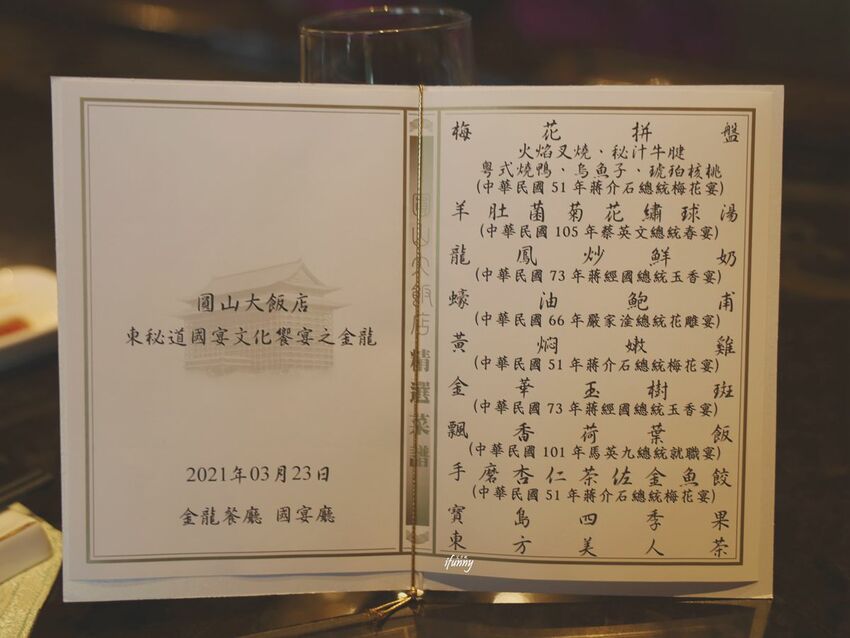 圓山大飯店
東秘道國宴文化饗宴之金龍
2021年03月23日
金龍餐廳 國宴廳
圓山大飯店 精選菜譜
梅花拼盤
火焰叉燒、秘汁牛腱
粵式燒鴨、烏魚子、琥珀核桃
(中華民國 51 年蔣介石總統梅花宴)
羊肚菌菊花繡球湯
(中華民國 105 年蔡英文總統春宴)
龍鳳炒鮮奶
(中華民國 73 年蔣經國總統玉香宴)
蠔油鮑甫
(中華民國 66 年嚴家淦總統花雕宴)
黃燜嫩雞
(中華民國 51 年蔣介石總統梅花宴)
金華玉樹斑
(中華民國 73 年蔣經國總統玉香宴)
飄香荷葉飯
(中華民國 101 年馬英九總統就職宴)
手磨杏仁茶佐金魚餃
(中華民國 51 年蔣介石總統梅花宴)
寶島四季果
東方美人茶
ifunny